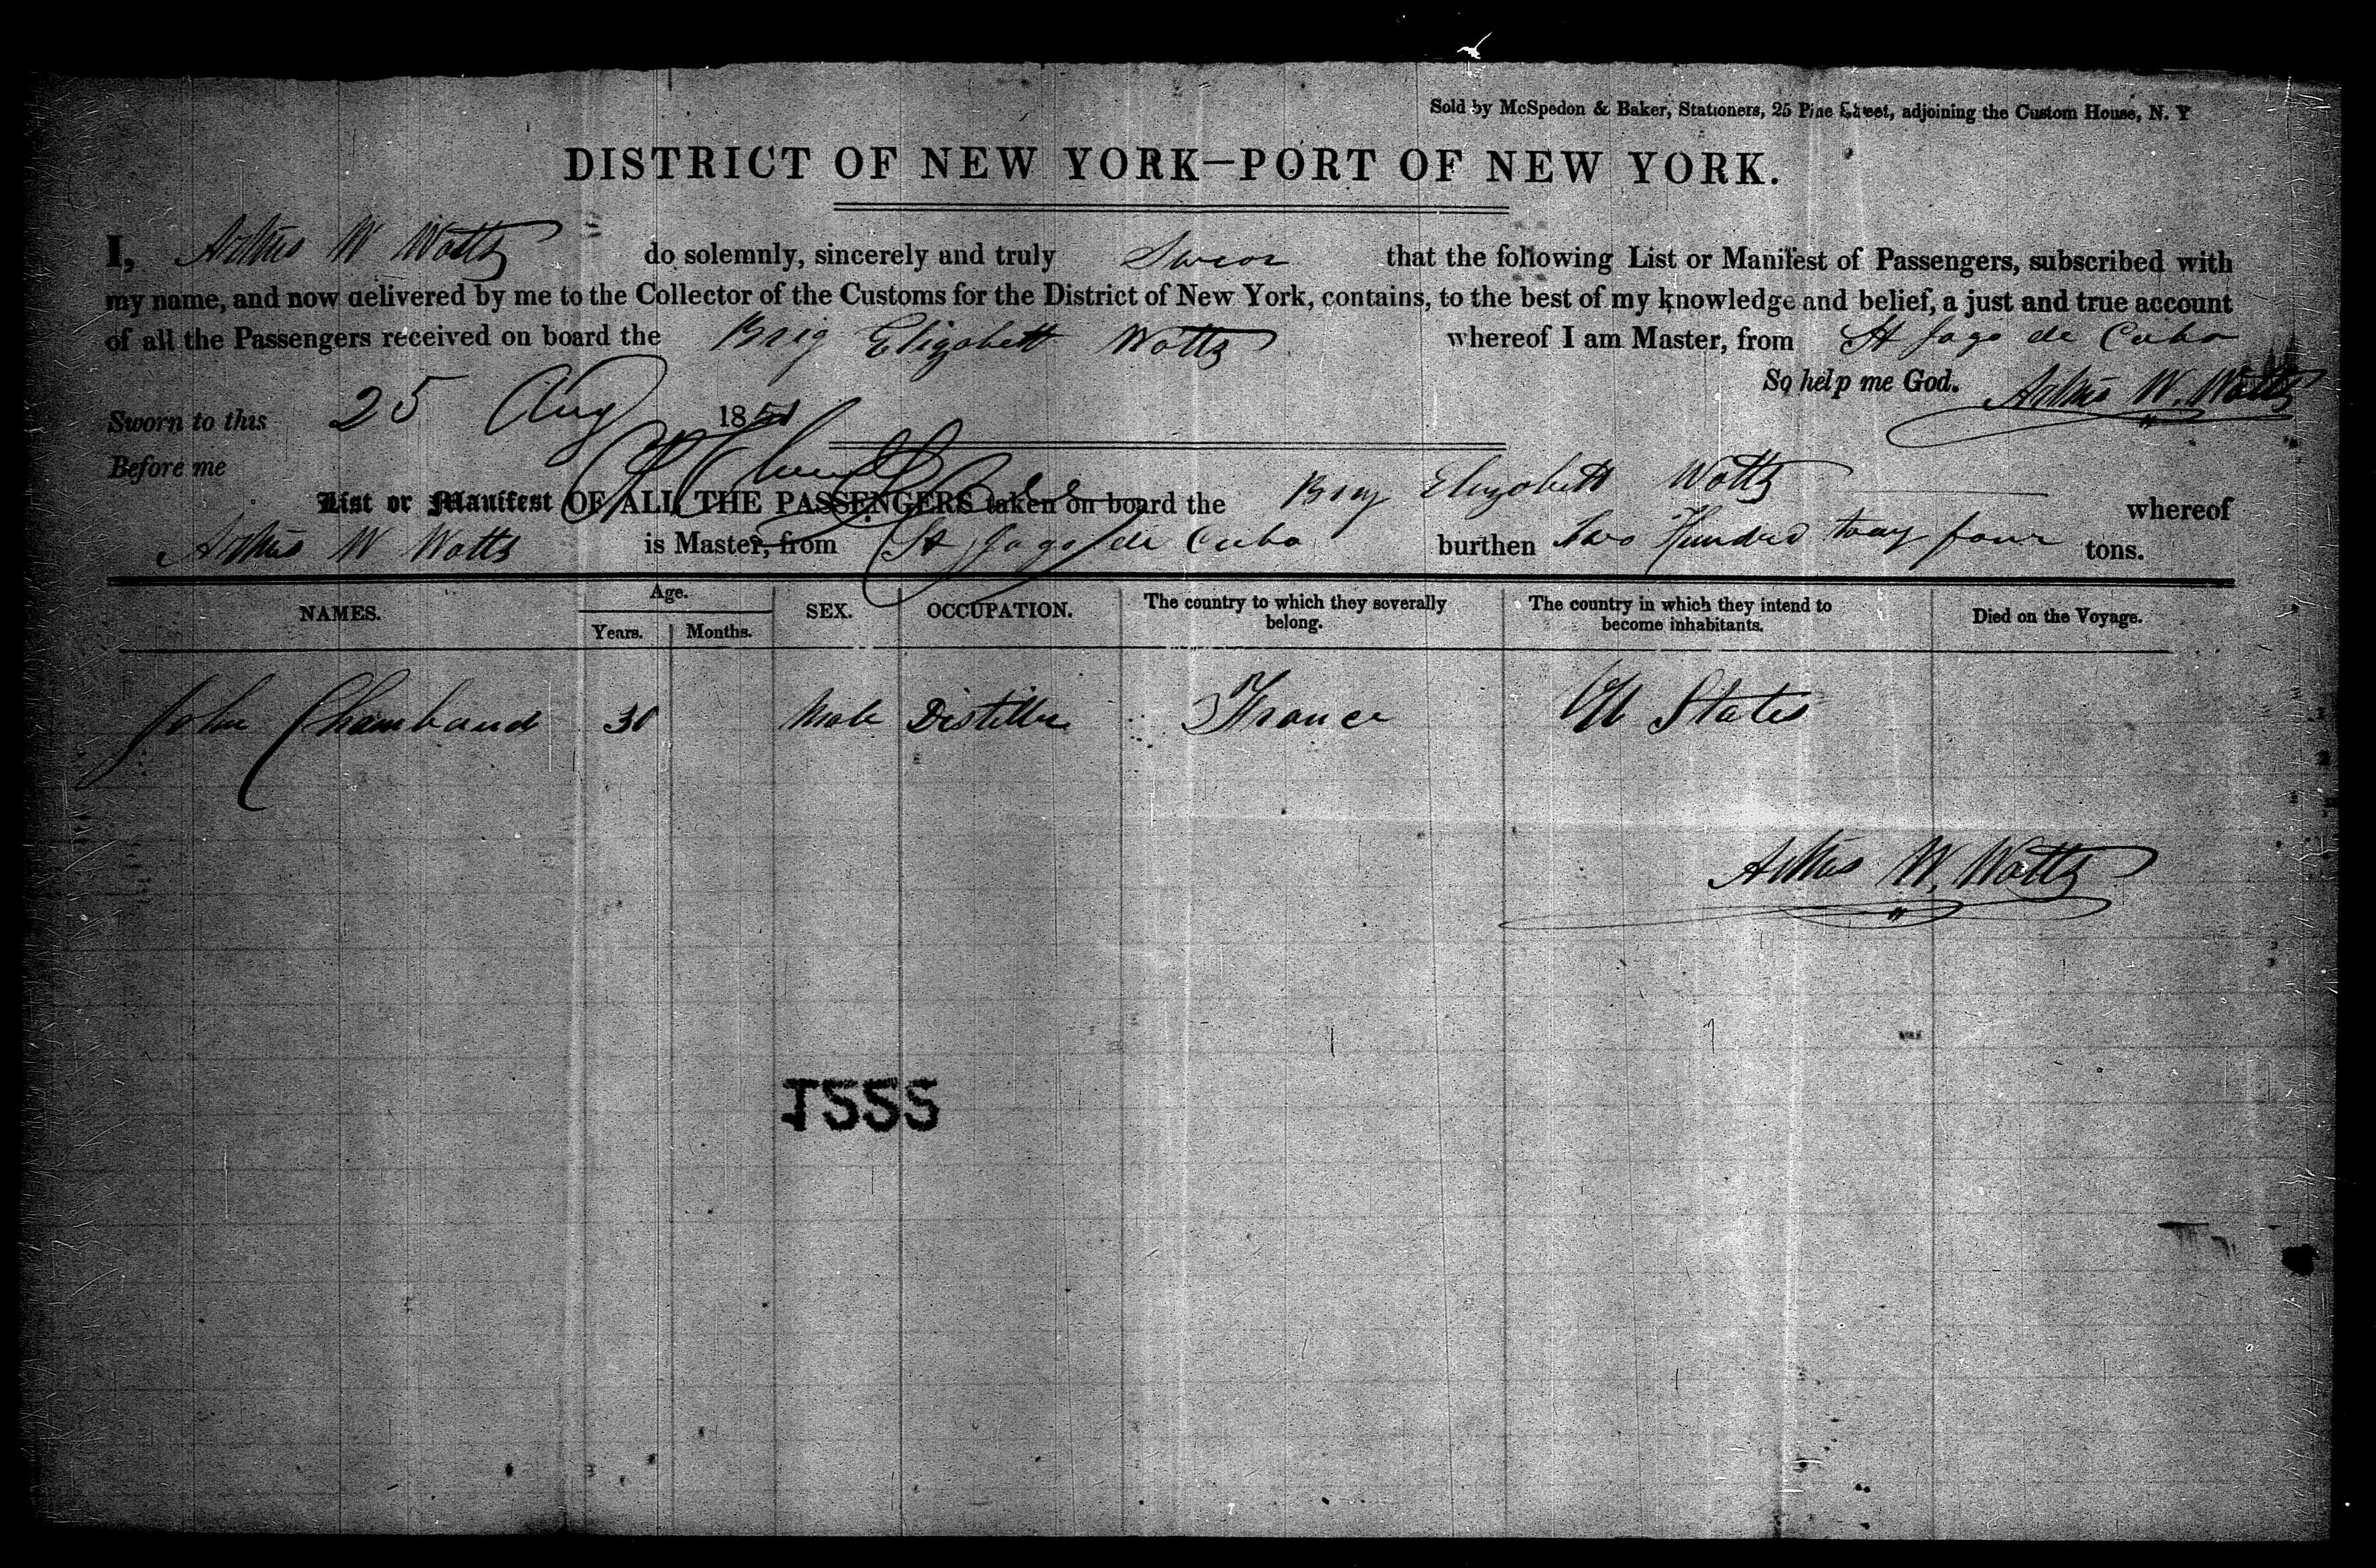 Sold by McSpedon & Baker, Stationers, 25 Pine Street, adjoining the Custom House, N. Y
DISTRICT OF NEW YORK—PORT OF NEW YORK.
I, W Watts do solemnly, sincerely and truly Swear that the following List or Manifest of Passengers, subscribed with
my name, and now delivered by me to the Collector of the Customs for the District of New York, contains, to the best of my knowledge and belief, a just and true account
of all the Passengers received on board the Brig Elizabeth Watts whereof I am Master, from St Jago de Cuba
So help me God. W. Watts
Sworn to this 25 Aug 1851
Before me
List or Manifest OF ALL THE PASSENGERS taken on board the Brig Elizabeth Watts whereof
W Watts is Master, from St Jago de Cuba burthen Two Hundred four tons.
NAMES. Age. SEX. OCCUPATION. The country to which they severally belong. The country in which they intend to become inhabitants. Died on the Voyage.
Years. Months.
John Chambaud 30 Male Distiller France U States
W. Watts
1555